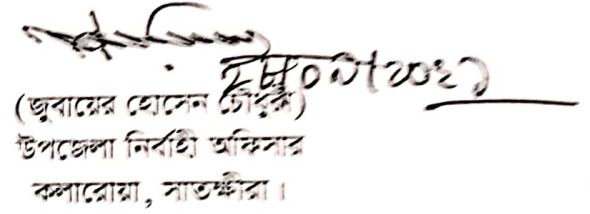 (জুবায়ের হোসেন চৌধুরী)
উপজেলা নির্বাহী অফিসার
কলারোয়া, সাতক্ষীরা।